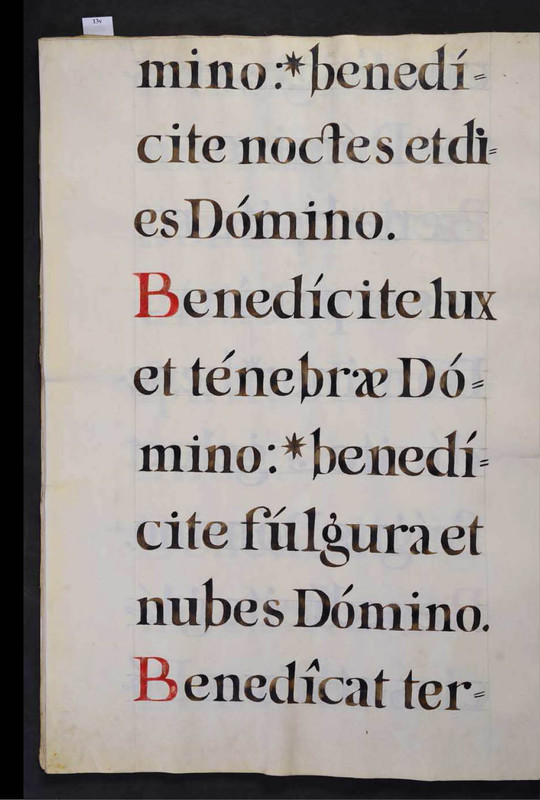 13v
mino:*benedí=
cite noctes et di=
es Dómino.
Benedícite lux
et ténebræ Dó=
mino:*benedí=
cite fúlgura et
nubes Dómino.
Benedîcat ter=